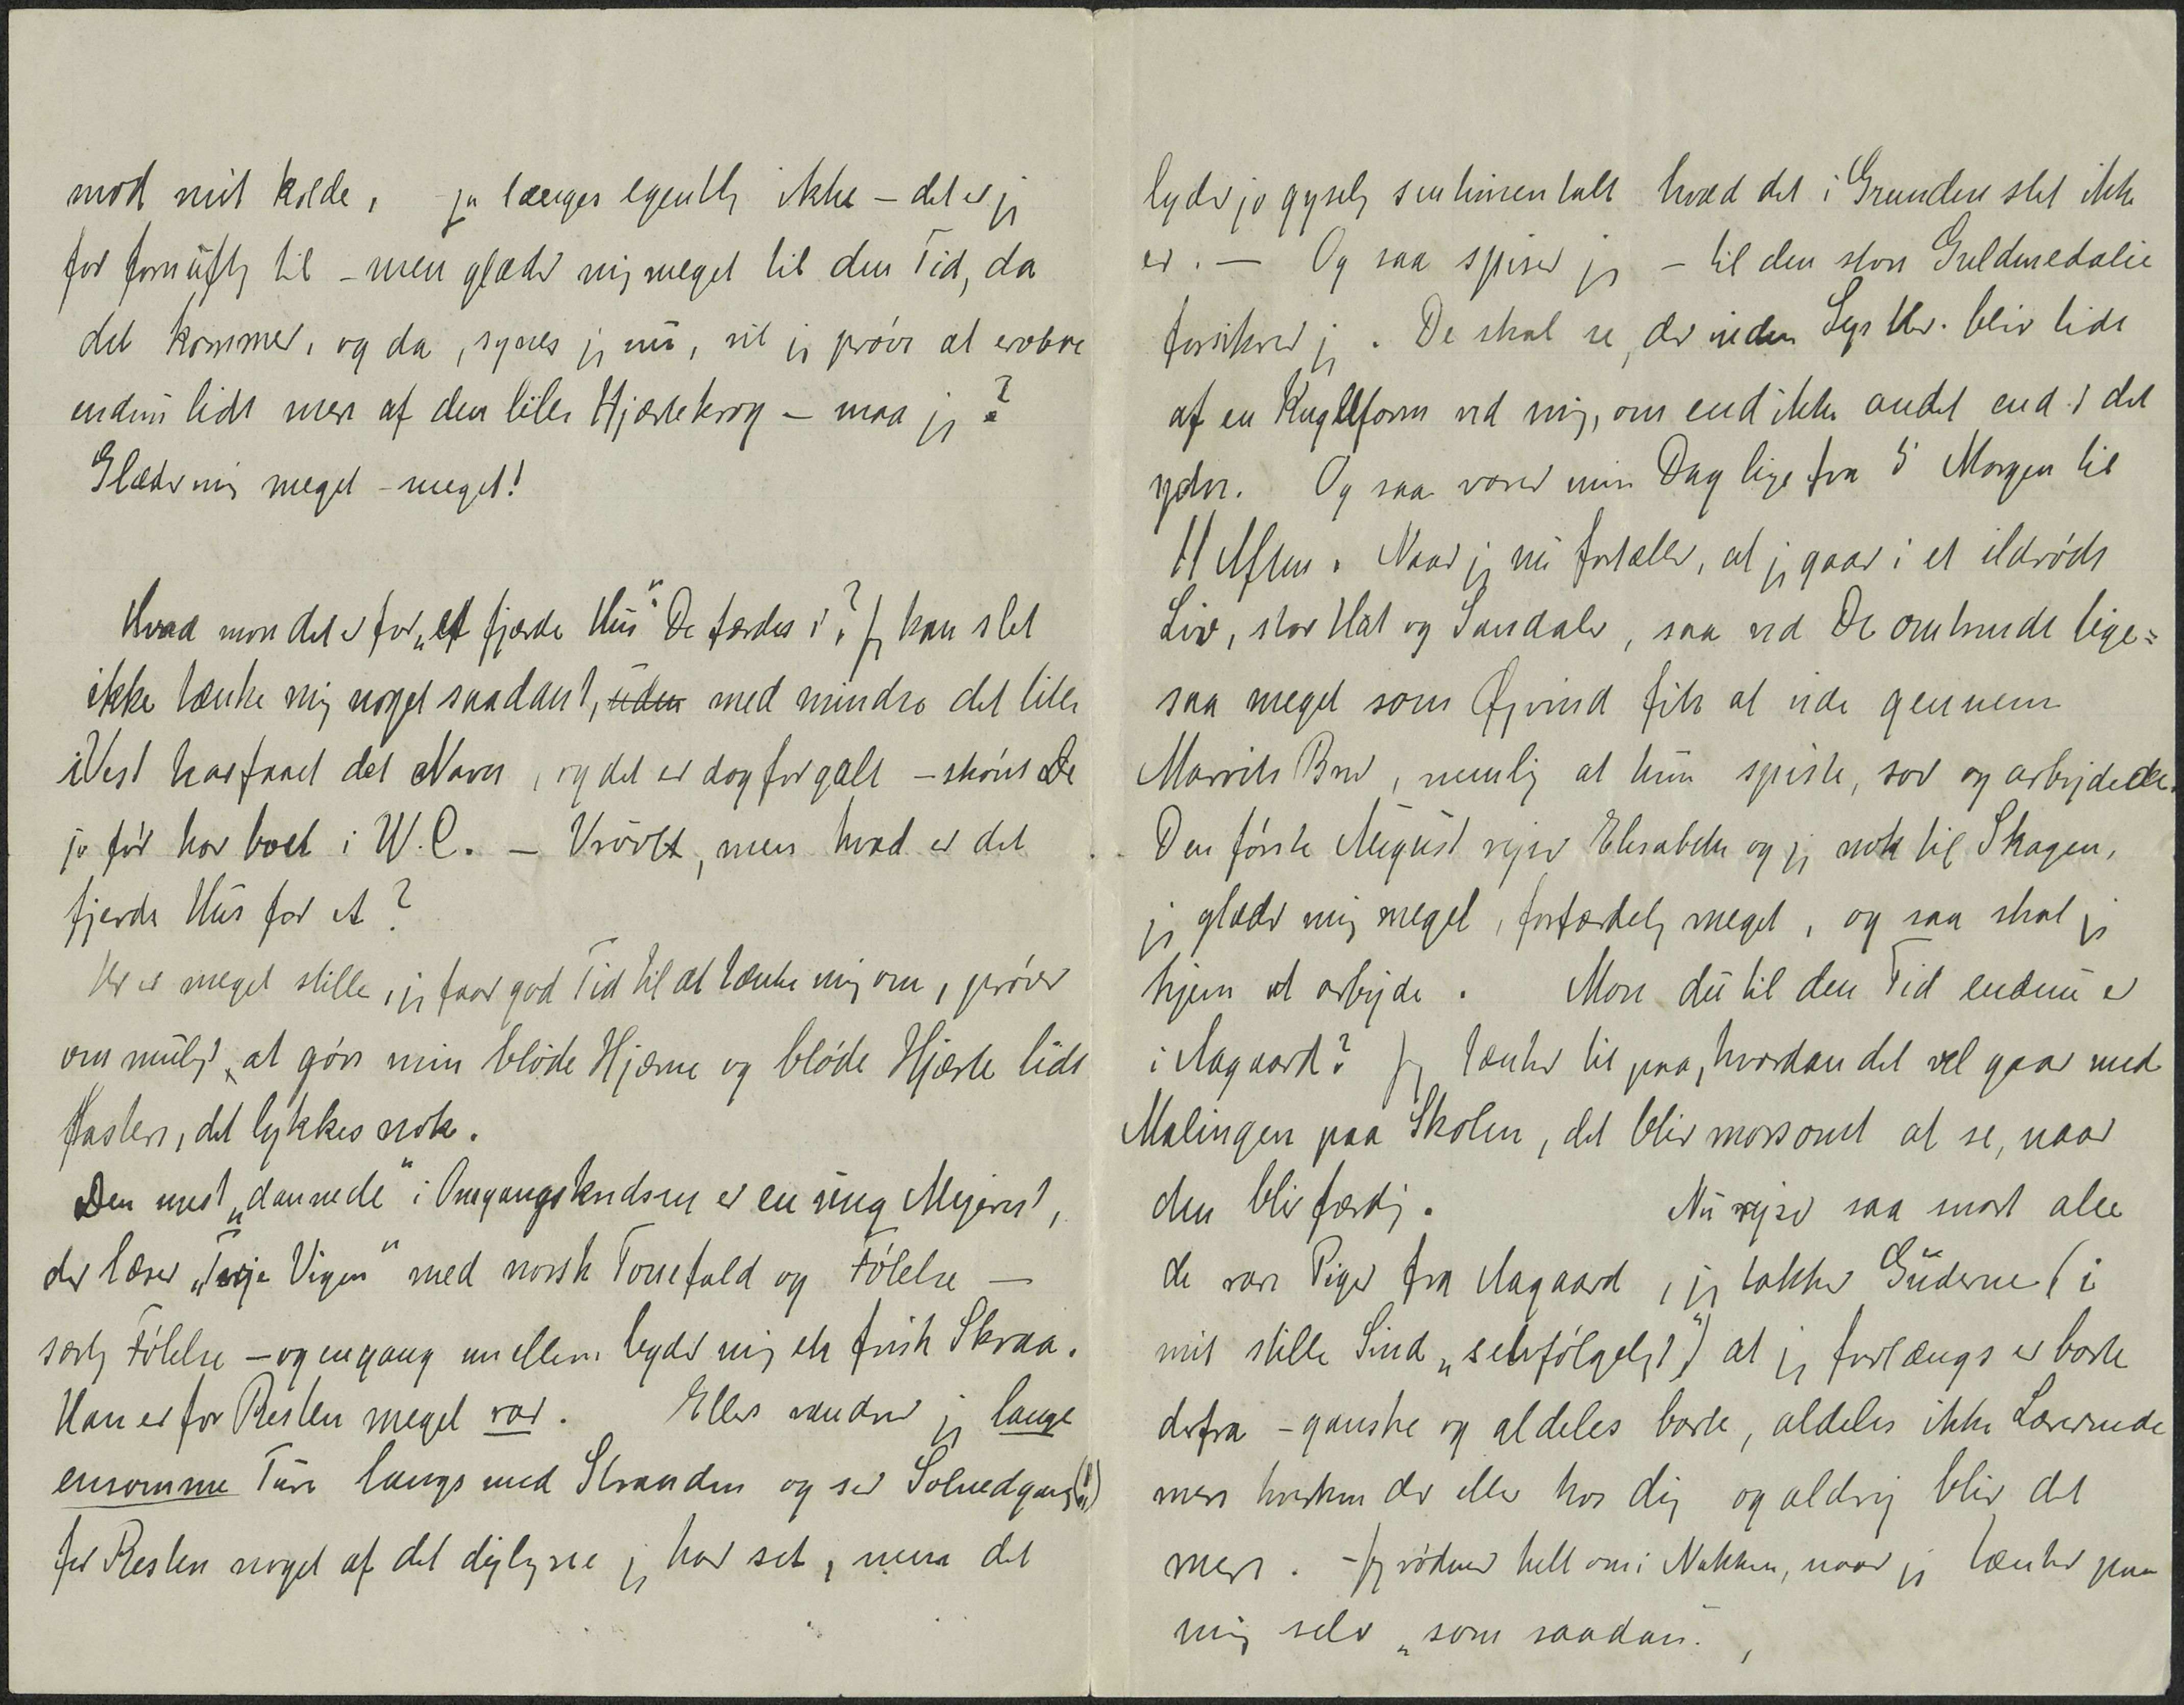 mod mit kolde, jeg længes egentlig ikke – det er jeg
for fornuftig til – men glæder mig meget til den Tid, da
det kommer, og da, synes jeg nu, vil jeg prøve at erobre
endnu lidt mere af den lille Hjærtekrog – maa jeg?
Glæder mig meget – meget!
Hvad mon det er for „et fjærde Hus" De færdes i? Jeg kan slet
ikke tænke mig noget saadant, uden med mindre det lille
i Vest har faaet det Navn, og det er dog for galt – skønt De
jo før har boet i W.C. – Vrøvlt, men hvad er det
fjerde Hus for et?
Her er meget stille, jeg faar god Tid til at tænke mig om, prøver
om muligt at gøre min bløde Hjærne og bløde Hjærte lidt
fastere, det lykkes nok.
Den mest „dannede" i Omgangskredsen er en ung Mejerist,
der læser „Terje Vigen" med norsk Tonefald og Følelse –
særlig Følelse – og engang imellem byder mig en frisk Skraa.
Han er for Resten meget rar. Ellers vandrer jeg lange
ensomme Ture langs med Stranden og ser Solnedgang (!)
for Resten noget af det dejligste jeg har set, men det
lyder jo gyselig sentimentalt hvad det i Grunden slet ikke
er. – Og saa spiser jeg – til den store Guldmedalie
forsikrer jeg. De skal se, der inden Sept. bliver lidt
af en Kugleform ved mig, om end ikke andet end i det
ydre. Og saa varer min Dag lige fra 5 Morgen til
11 Aften. Naar jeg nu fortæller, at jeg gaar i et ildrødt
Liv, stor Hat og Sandaler, saa ved De omtrendt lige=
saa meget som Øjvind fik at vide gennem
Marrits Brev, nemlig at hun spiste, sov og arbejdede.
Den første August rejser Elisabeth og jeg nok til Skagen,
jeg glæder mig meget, forfærdelig meget, og saa skal jeg
hjem at arbejde. Mon du til den Tid endnu er
i Aagaard? Jeg tænker tit paa, hvordan det vel gaar med
Malingen paa Skolen, det bliver morsomt at se, naar
den bliver færdig. Nu rejser saa snart alle
de rare Piger fra Aagaard, jeg takker Guderne (i
mit stille Sind „selvfølgeligt") at jeg forlængs er borte
derfra – ganske og aldeles borte, aldeles ikke Lærerinde
mere hverken der eller hos dig og aldrig bliver det
mere. – Jeg rødmer helt om i Nakken, naar jeg tænker paa
mig selv „som saadan".